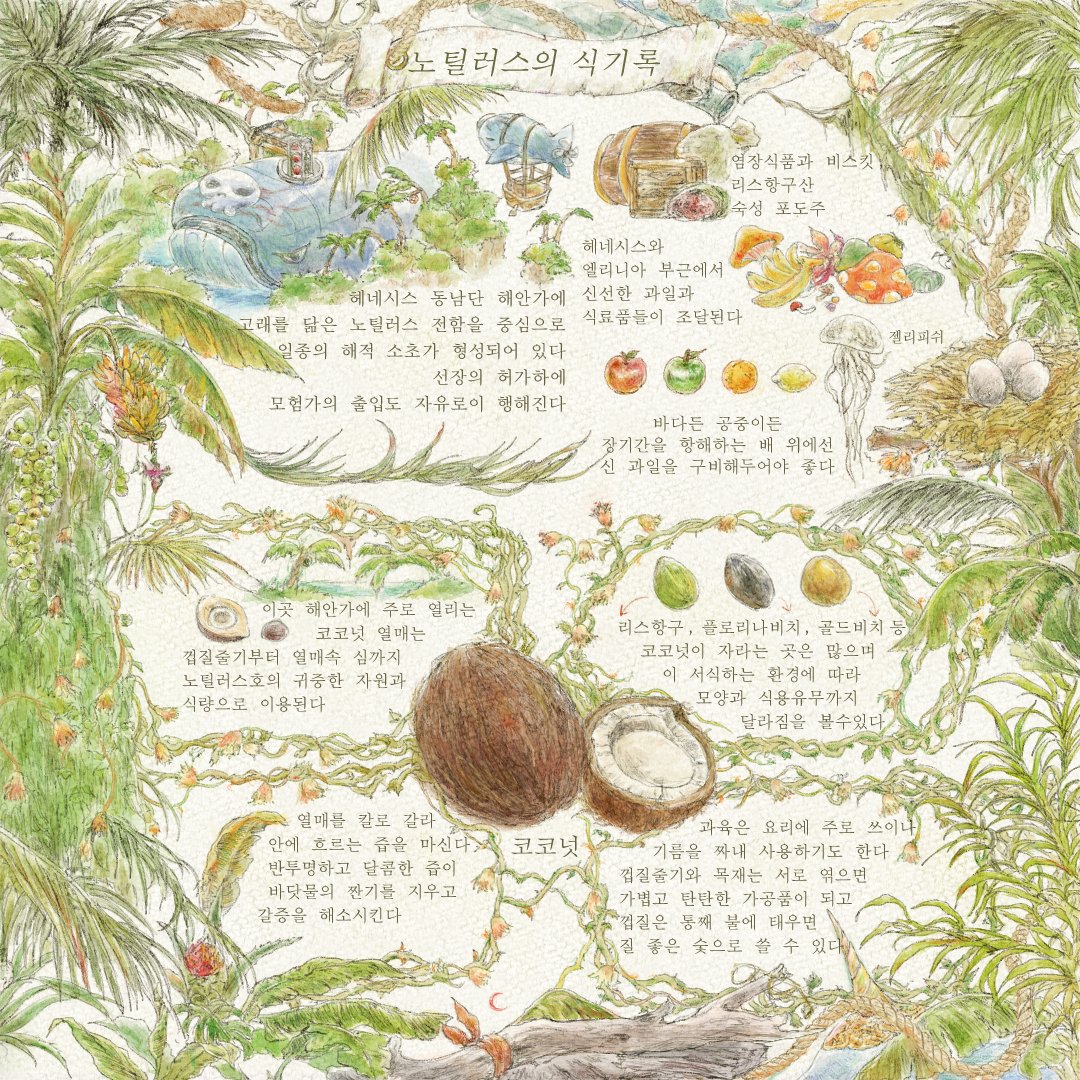 노틸러스의 식기록
염장식품과 비스킷
리스항구산
숙성 포도주
헤네시스와
엘리니아 부근에서
신선한 과일과
식료품들이 조달된다
헤네시스 동남단 해안가에
고래를 닮은 노틸러스 전함을 중심으로
일종의 해적 소초가 형성되어 있다
선장의 허가하에
모험가의 출입도 자유로이 행해진다
젤리피쉬
바다든 공중이든
장기간을 항해하는 배 위에선
신 과일을 구비해두어야 좋다
이곳 해안가에 주로 열리는
코코넛 열매는
껍질줄기부터 열매속 심까지
노틸러스호의 귀중한 자원과
식량으로 이용된다
리스항구, 플로리나비치, 골드비치 등
코코넛이 자라는 곳은 많으며
이 서식하는 환경에 따라
모양과 식용유무까지
달라짐을 볼수있다
열매를 칼로 갈라
안에 흐르는 즙을 마신다
반투명하고 달콤한 즙이
바닷물의 짠기를 지우고
갈증을 해소시킨다
코코넛
과육은 요리에 주로 쓰이나
기름을 짜내 사용하기도 한다
껍질줄기와 목재는 서로 엮으면
가볍고 탄탄한 가공품이 되고
껍질은 통째 불에 태우면
질 좋은 숯으로 쓸 수 있다